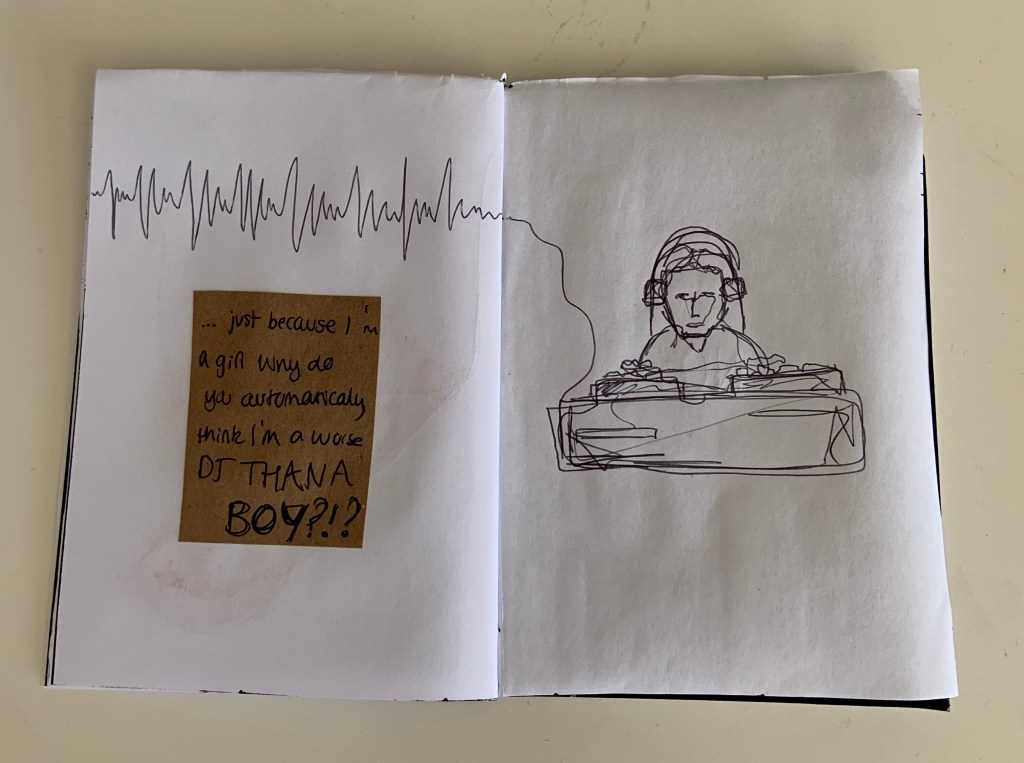 ... just because I'm
a girl why do
you automatically
think I'm a worse
DJ THANA
BOY?!?